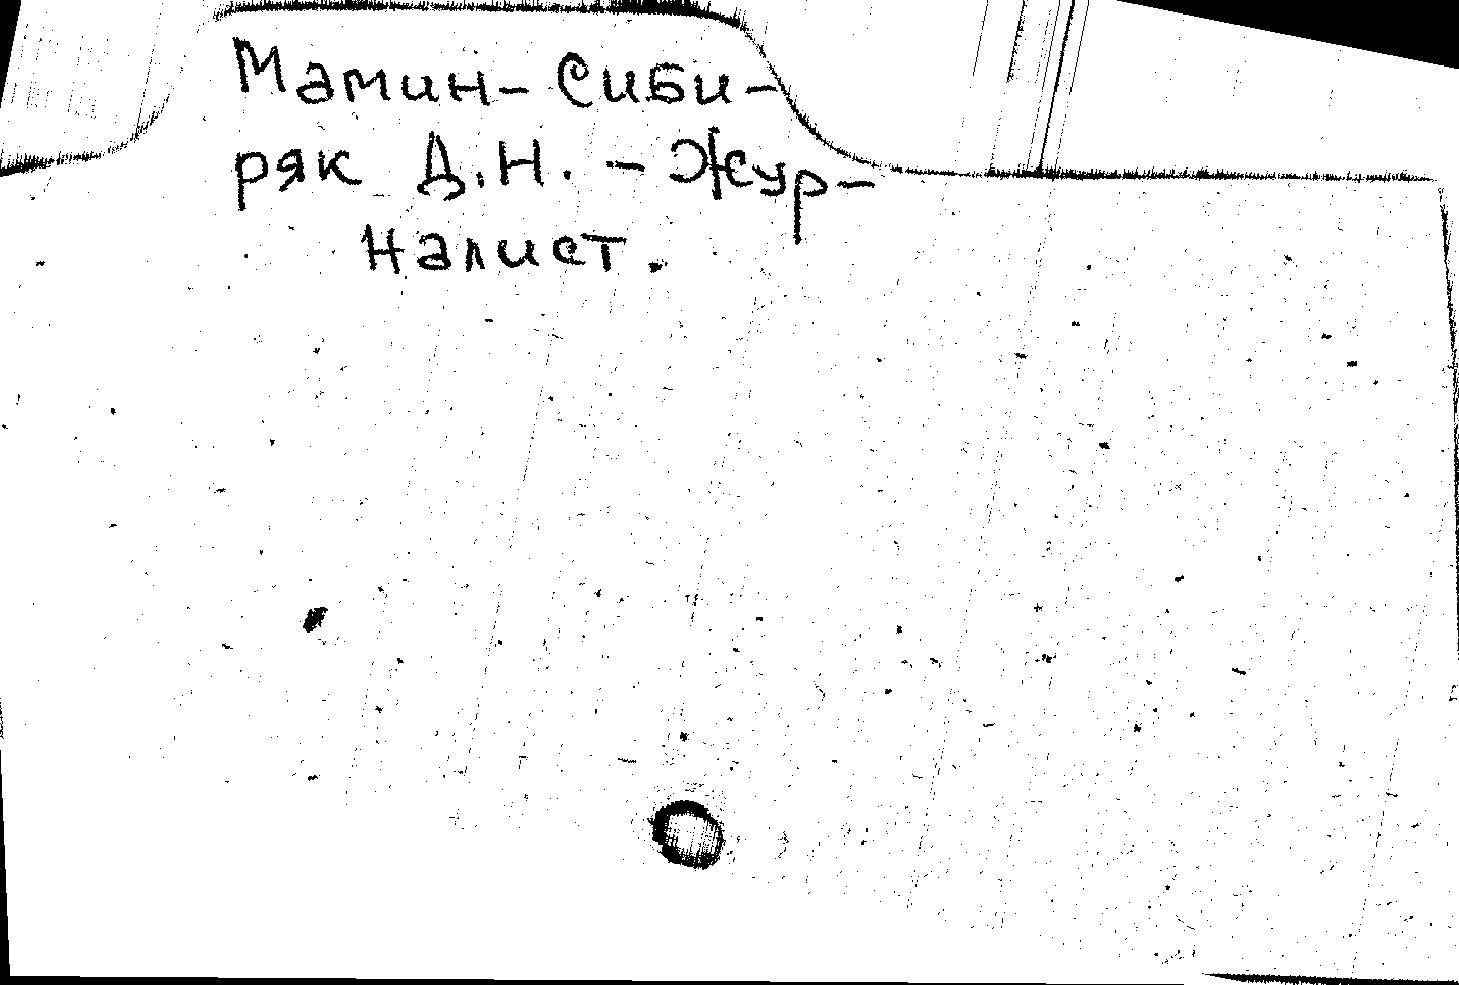 Мамин-Сиби-
ряк Д.Н. - Жур-
налист.